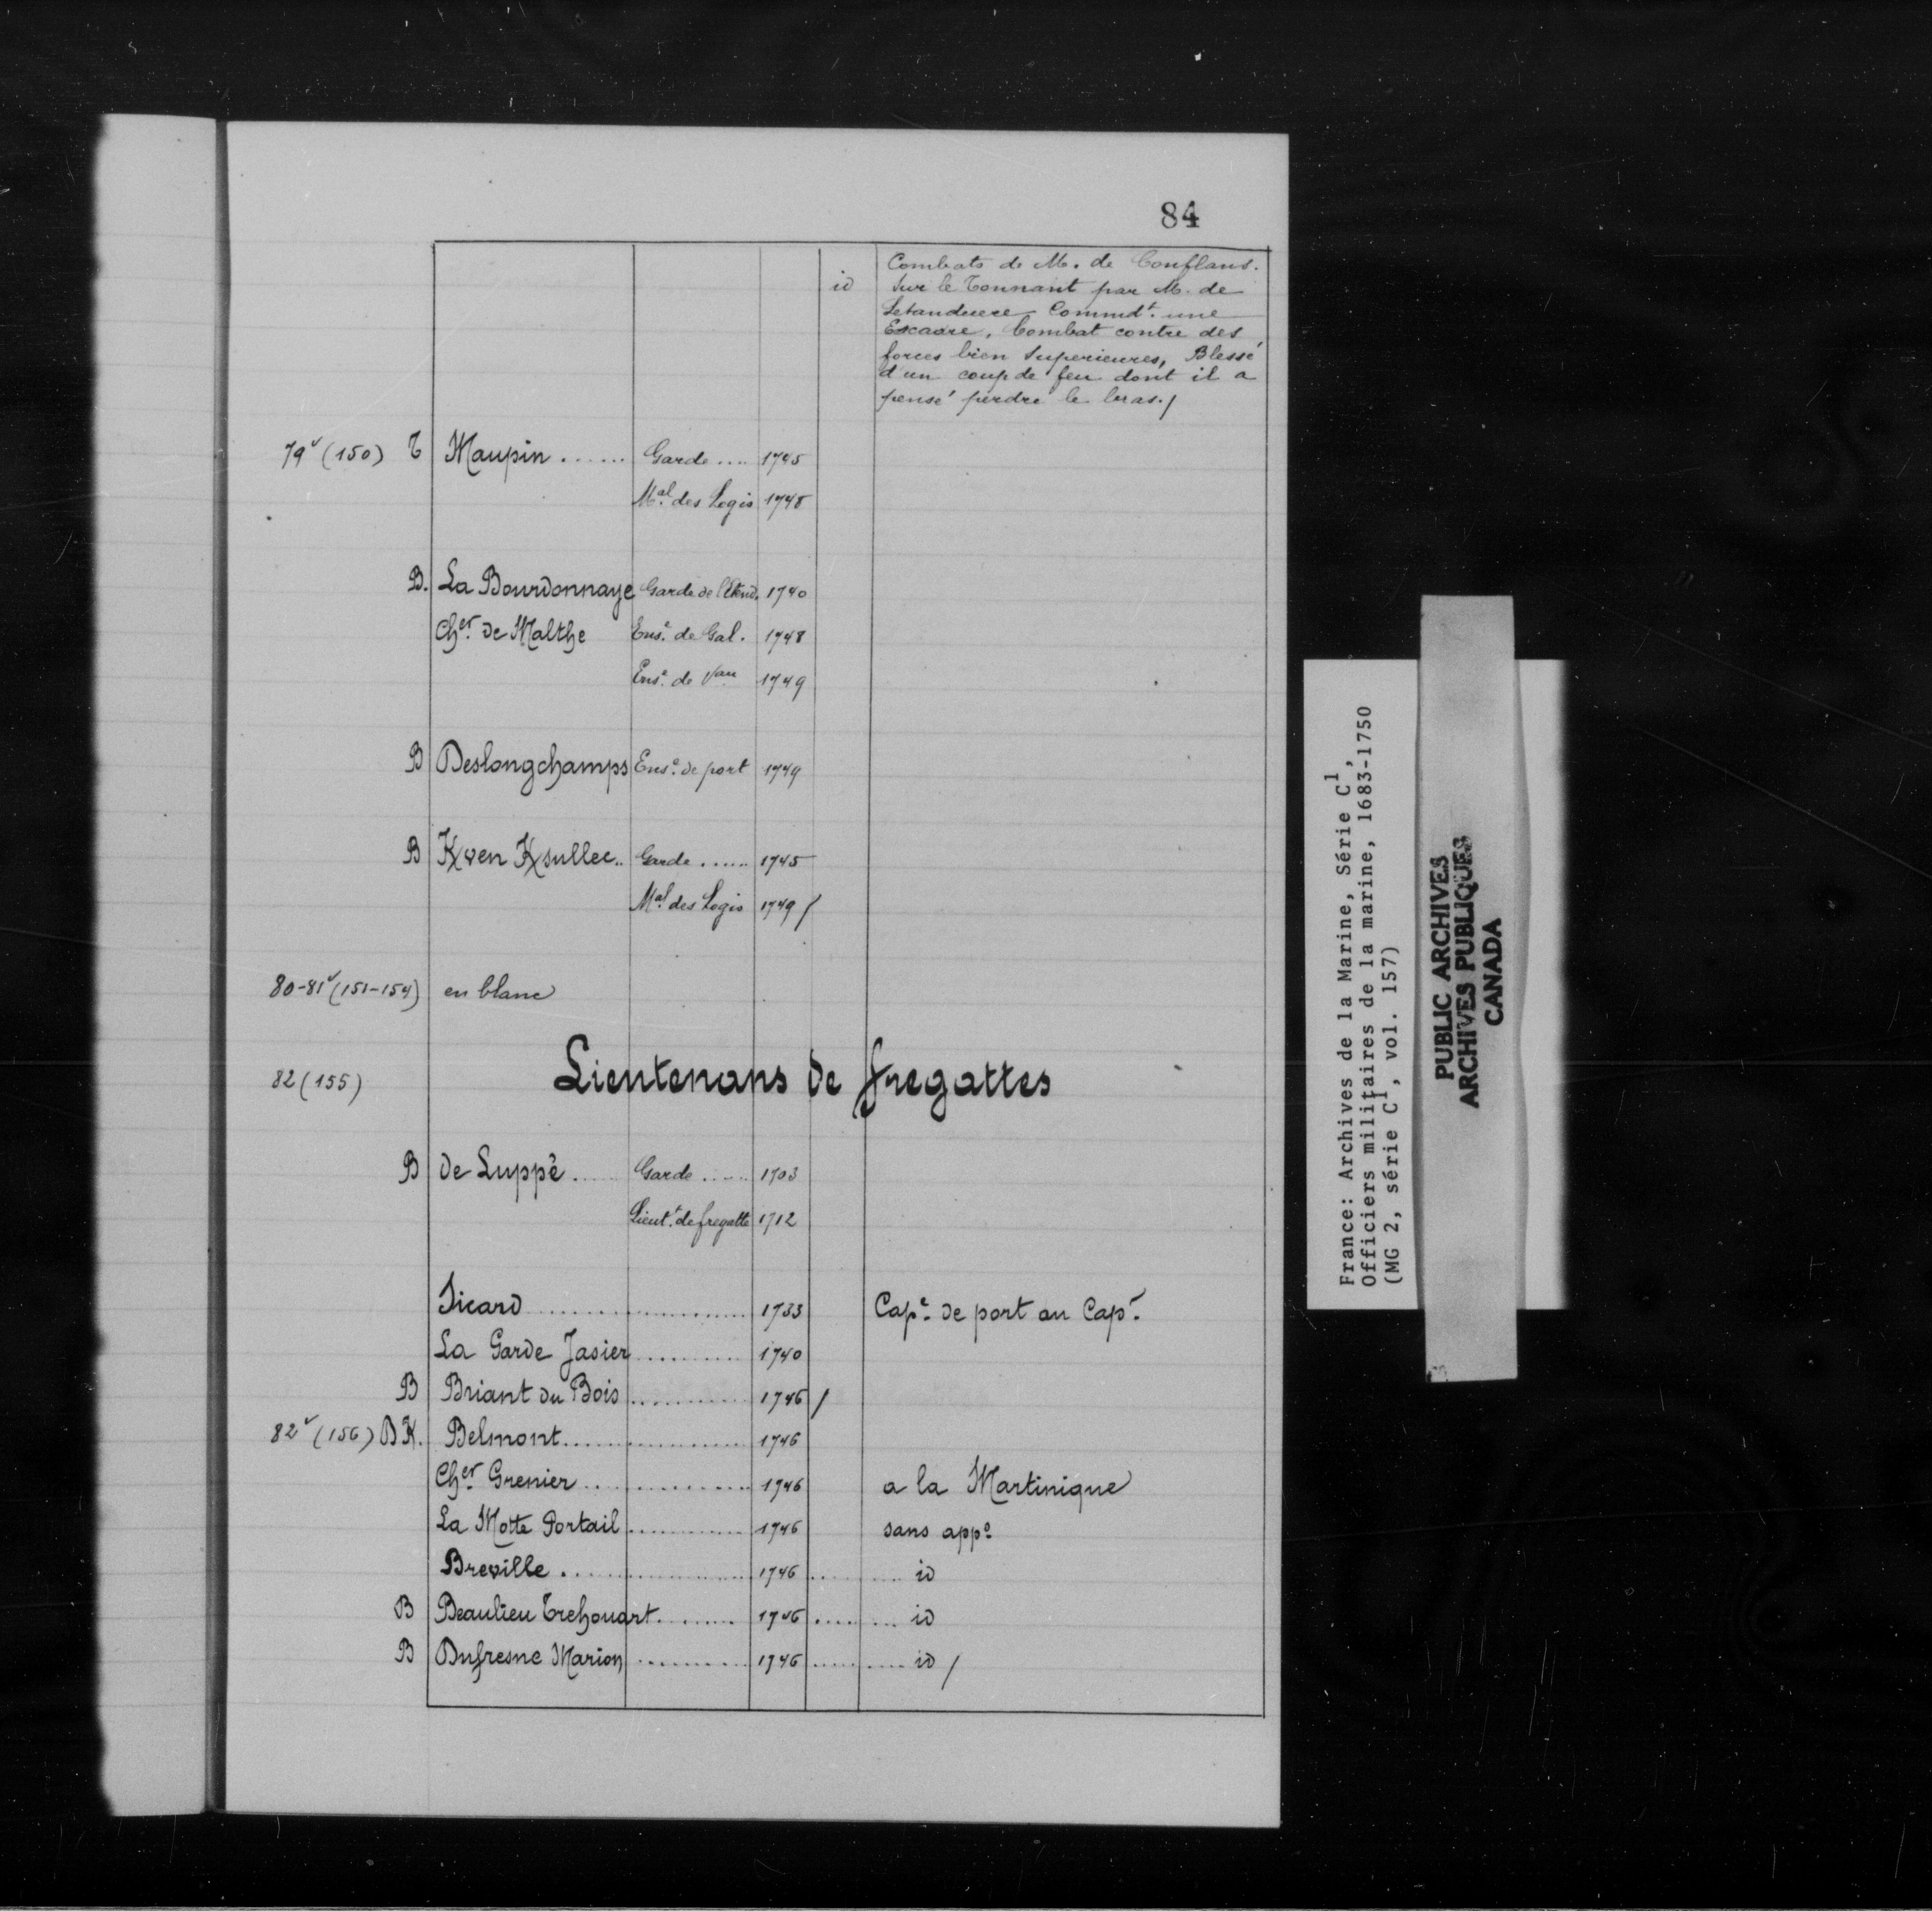 84
Combats de M. de Conflans.
id Sur le Tonnant par M. de
Letanduere Commdt. une
Escadre, Combat contre des
forces bien Superieures, Blessé
d'un coup de feu dont il a
pensé perdre le bras./
79v (150) T Maupin ...... Garde .... 1745
Mal. des Logis 1748
B. La Bourdonnaye Garde de l'Etend. 1740
Cher. de Malthe Ense. de Gal. 1748
Ense. de Vau 1749
B Deslongchamps Ense. de port 1749
B Kven Ksullec.. Garde ...... 1745
Mal. des Logis 1749 /
80-81v (151-154) en blanc
82 (155) Lieutenans de fregattes
B de Luppé ..... Garde ..... 1703
Lieut. de fregatte 1712
Sicard .................. 1733 Cape. de port au Capr.
La Garde Jasier ........... 1740
B Briant du Bois ............ 1746 /
82v (156) B K. Belmont .................. 1746
Cher. Grenier ................ 1746 a la Martinique
La Motte Portail ............ 1746 sans appo.
Breville .................. 1746 ......... id
B Beaulieu Trehouart ......... 1746 ......... id
B Dufresne Marion ........... 1746 ......... id /
France: Archives de la Marine, Série C1,
Officiers militaires de la marine, 1683-1750
(MG 2, série C1, vol. 157)
PUBLIC ARCHIVES
ARCHIVES PUBLIQUES
CANADA